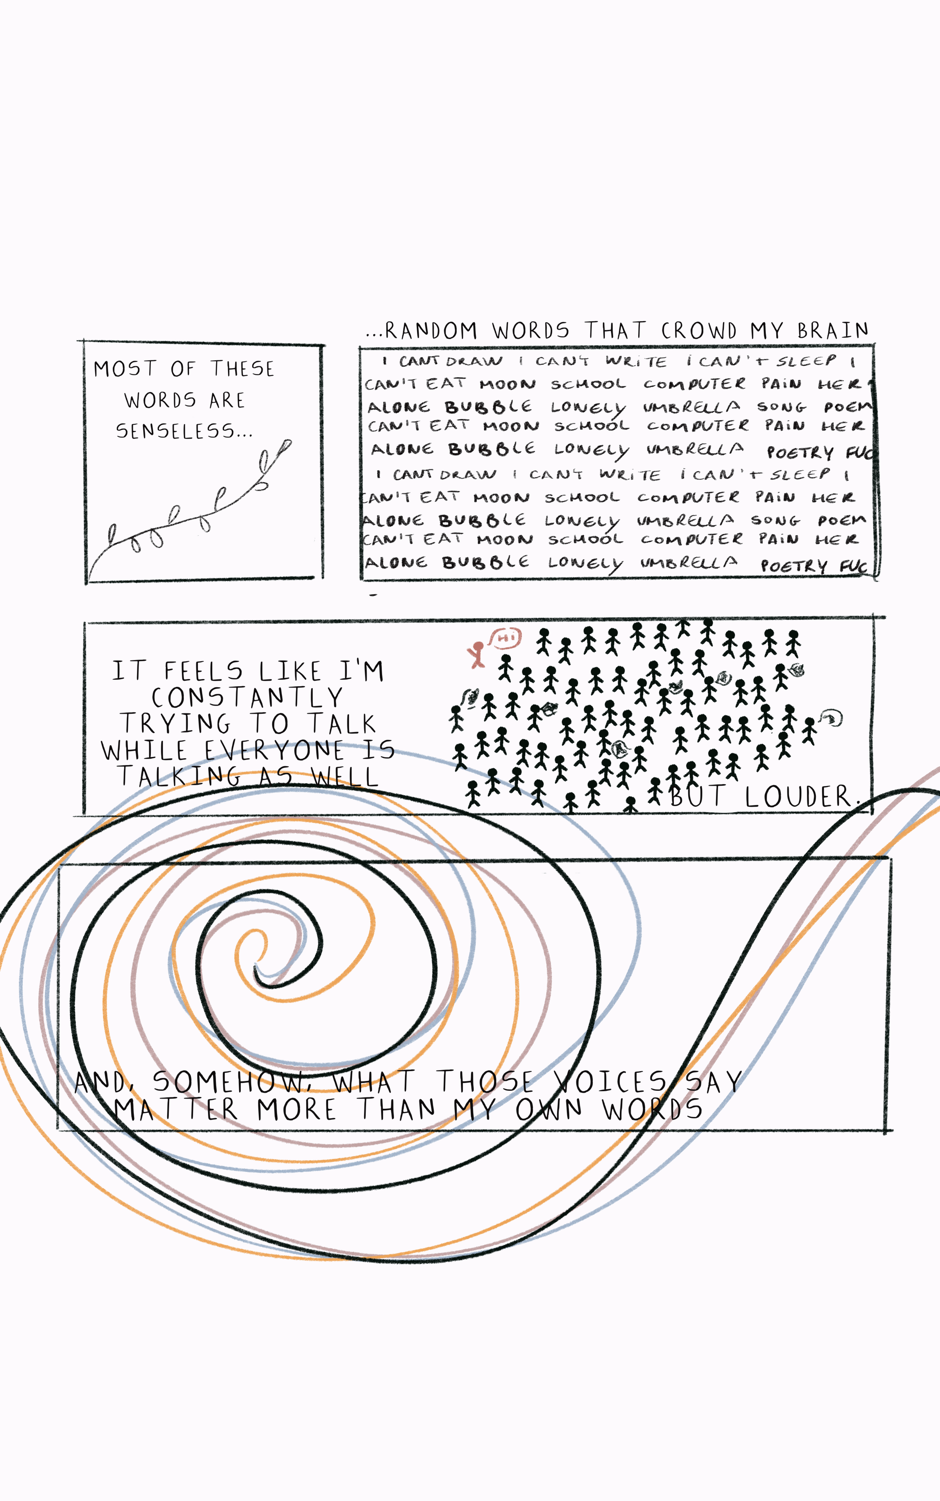 MOST OF THESE
WORDS ARE
SENSELESS...
...RANDOM WORDS THAT CROWD MY BRAIN
I CANT DRAW I CAN'T WRITE I CAN'T SLEEP I
CAN'T EAT MOON SCHOOL COMPUTER PAIN HER
ALONE BUBBLE LONELY UMBRELLA SONG POEM
CAN'T EAT MOON SCHOOL COMPUTER PAIN HER
ALONE BUBBLE LONELY UMBRELLA POETRY FUC
I CANT DRAW I CAN'T WRITE I CAN'T SLEEP I
CAN'T EAT MOON SCHOOL COMPUTER PAIN HER
ALONE BUBBLE LONELY UMBRELLA SONG POEM
CAN'T EAT MOON SCHOOL COMPUTER PAIN HER
ALONE BUBBLE LONELY UMBRELLA POETRY FUC
IT FEELS LIKE I'M
CONSTANTLY
TRYING TO TALK
WHILE EVERYONE IS
TALKING AS WELL
HI
BUT LOUDER.
AND, SOMEHOW, WHAT THOSE VOICES SAY
MATTER MORE THAN MY OWN WORDS